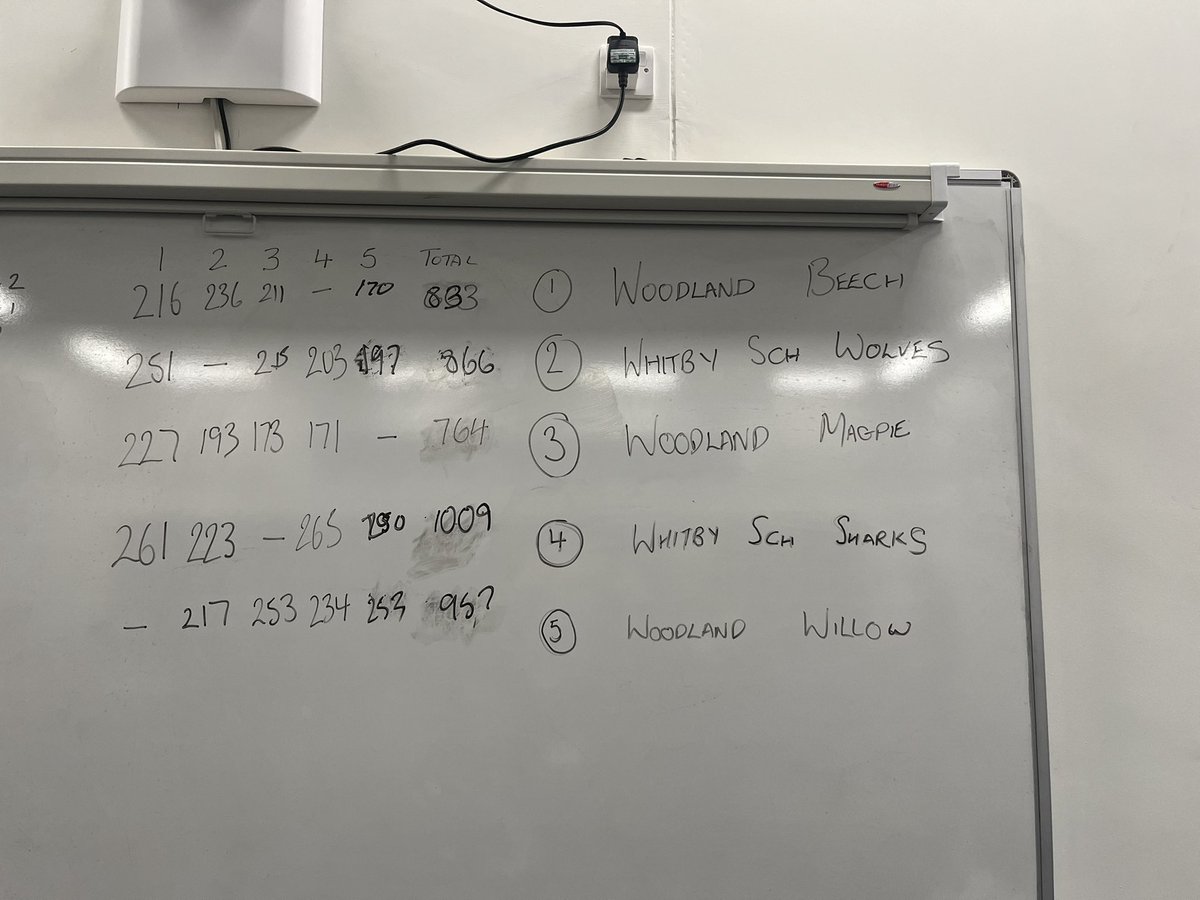 1 2 3 4 5 TOTAL
216 236 211 - 170 833 ① WOODLAND BEECH
251 - 215 203 197 866 ② WHITBY SCH WOLVES
227 193 173 171 - 764 ③ WOODLAND MAGPIE
261 223 - 265 1009 ④ WHITBY SCH SHARKS
- 217 253 234 253 957 ⑤ WOODLAND WILLOW